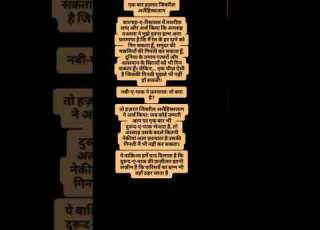 एक बार हज़रत जिब्रील
अलैहिस्सलाम
बारगाह-ए-रिसालत में हाज़िर
हुए और अर्ज़ किया कि अल्लाह
तआला ने मुझे इतना इल्म अता
फ़रमाया है कि मैं रेत के हर दाने को
गिन सकता हूँ, समुंदर की
मछलियों की गिनती कर सकता हूँ,
दुनिया के तमाम पत्थरों और
आसमान के सितारों को भी गिन
सकता हूँ। लेकिन... एक चीज़ ऐसी
है जिसकी गिनती मुझसे भी नहीं
हो सकती।
नबी-ए-पाक ने फ़रमाया: वो क्या
है?
तो हज़रत जिब्रील अलैहिस्सलाम
ने अर्ज़ किया: जब कोई उम्मती
आप पर एक बार भी
दुरूद-ए-पाक भेजता है, तो
अल्लाह उसके बदले कितनी
नेकियां अता फ़रमाता है उसकी
गिनती मैं भी नहीं कर सकता।
ये वाक़िआ हमें याद दिलाता है कि
दुरूद-ए-पाक की फ़ज़ीलत इतनी
अज़ीम है कि फरिश्तों का इल्म भी
वहाँ ठहर जाता है